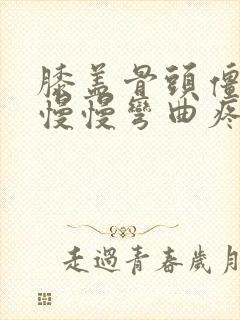 膝盖骨頭僵
慢慢彎曲疼
走過青春歲月